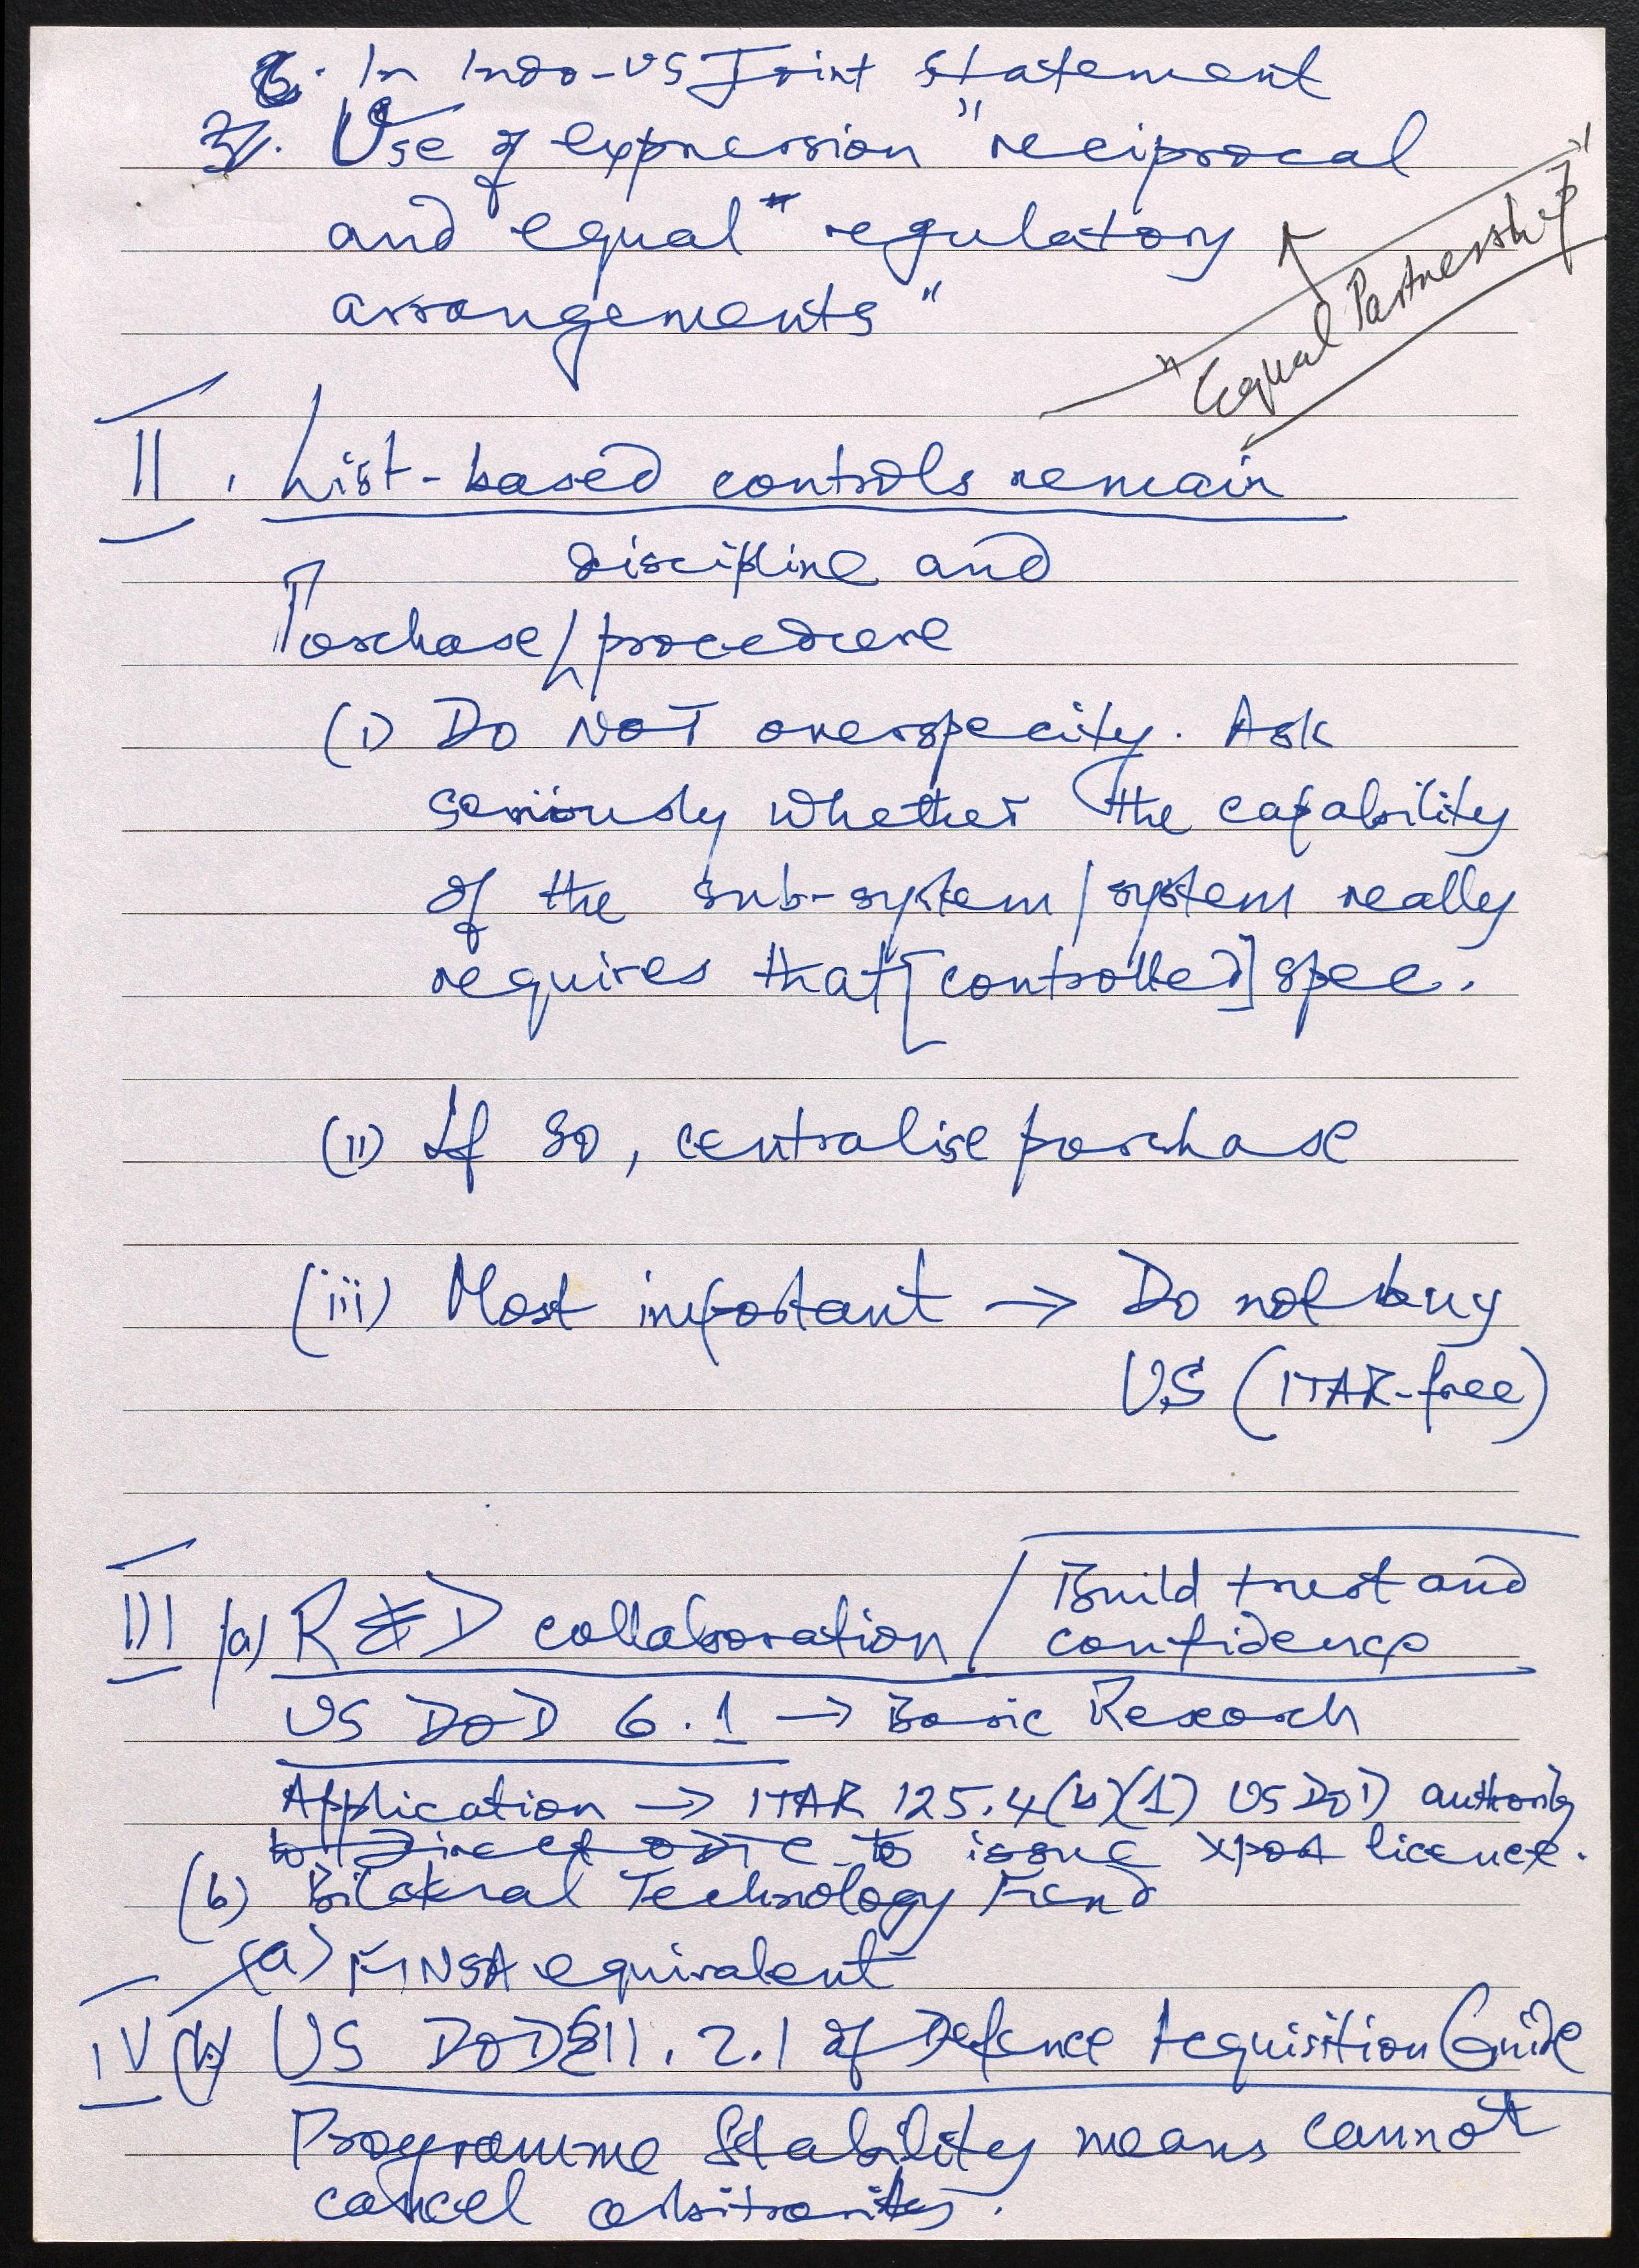 6. In Indo-US Joint Statement
3/. Use of expression "reciprocal
and equal" regulatory
arrangements"
"Equal Partnership"
II. List-based controls remain
discipline and
Purchase/procedure
(i) Do NOT overspecify. Ask
seriously whether the capability
of the sub-system/system really
requires that [controlled] spec.
(ii) If so, centralise purchase
(iii) Most important → Do not buy
US (ITAR-free)
Build trust and
III (a) R&D collaboration / confidence
US DoD 6.1 → Basic Research
Application → ITAR 125.4(b)(1) US DoD authority
to issue xport licence.
(b) Bilateral Technology Fund
(a) FINSA equivalent
IV (b) US DoD §11.2.1 of Defence Acquisition Guide
Programme Stability means cannot
cancel arbitrarily.